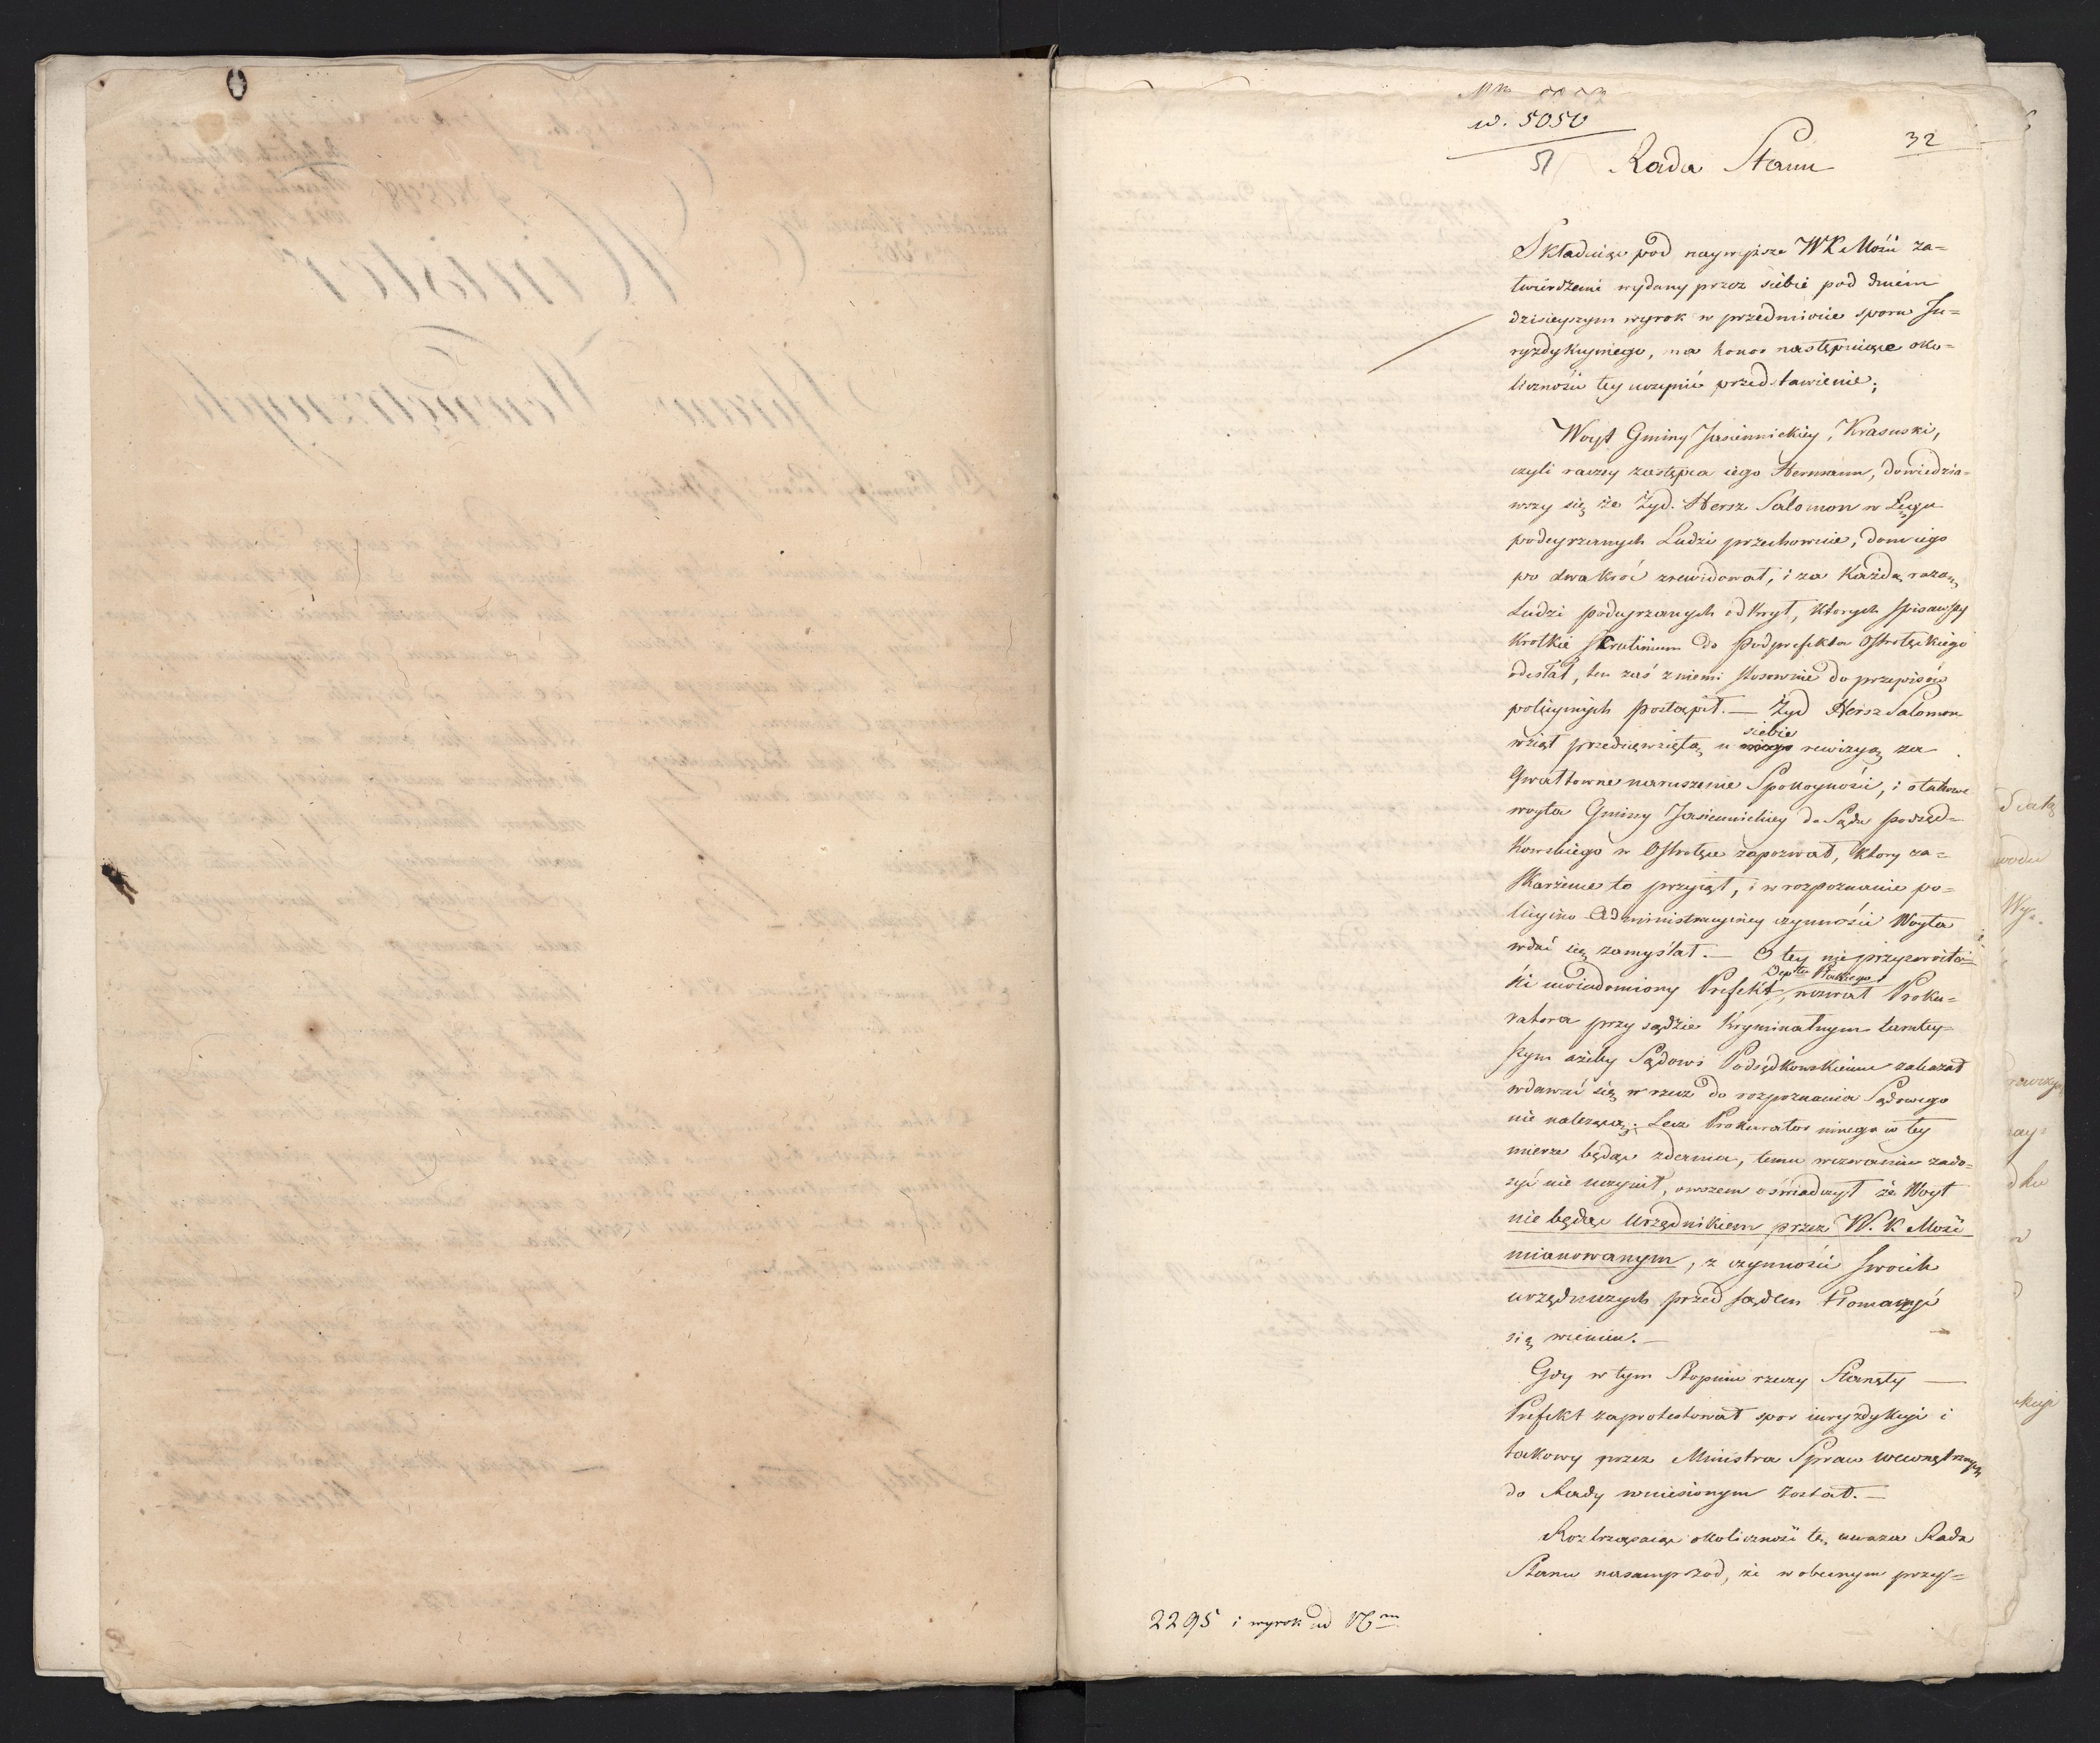 w. 5050
51
32
Rada Stanu
Składaiąc pod naywyższe WKMości za=
twierdzenie wydany przez siebie pod dniem
dzisieyszym wyrok w przedmiocie sporu Ju=
ryzdykcyinego, ma honor następuiące oko=
liczności tey uczynić przedstawienie;
Woyt Gminy Jasiennickiey, Krasuski,
czyli raczey zastępca iego Hermann, dowiedzia=
wszy się że Żyd Hersz Salomon w Łęgu
podeyrzanych Ludzi przechowuie, dom iego
po dwakroć zrewidował, i za każdą razą
Ludzi podeyrzanych odkrył, ktorych spisawszy
krotkie skrutinium do Podprefekta Ostrołęckiego
odesłał, ten zaś z niemi stosownie do przepisów
policyinych postąpił. — Żyd Hersz Salomon
wziął przedsięwziętą u siebie rewizyą za
Gwałtowne naruszenie Spokoyności, i o takowe
woyta Gminy Jasiennickiey do Sądu podsęd=
kowskiego w Ostrołęce zapozwał, ktory za=
skarżenie to przyiął, i w rozpoznanie po=
licyino Administracyiney czynności Woyta
wdać się zamyślał. — O tey nieprzyzwoito=
ści uwiadomiony Prefekt Deptu Płockiego, wezwał Proku=
ratora przy sądzie Kryminalnym tamtey=
szym ażeby Sądowi Podsędkowskiemu zakazał
wdawać się w rzecz do rozpoznania Sądowego
nie należącą. Lecz Prokurator innego w tey
mierze będąc zdania, temu wezwaniu zado=
syć nie uczynił, owszem oświadczył że Woyt
nie będąc Urzędnikiem przez W. K. Mość
mianowanym, z czynności swoich
urzędniczych przed sądem tłomaczyć
się winien. —
Gdy w tym stopniu rzeczy stanęły —
Prefekt zaprotestował spor iuryzdykcyi i
takowy przez Ministra Spraw wewnętrznych
do Rady wniesionym został. —
Roztrząsaiąc okoliczność tę, uważa Rada
Stanu nasamprzod, że w obecnym przy=
2295 i wyrok ad